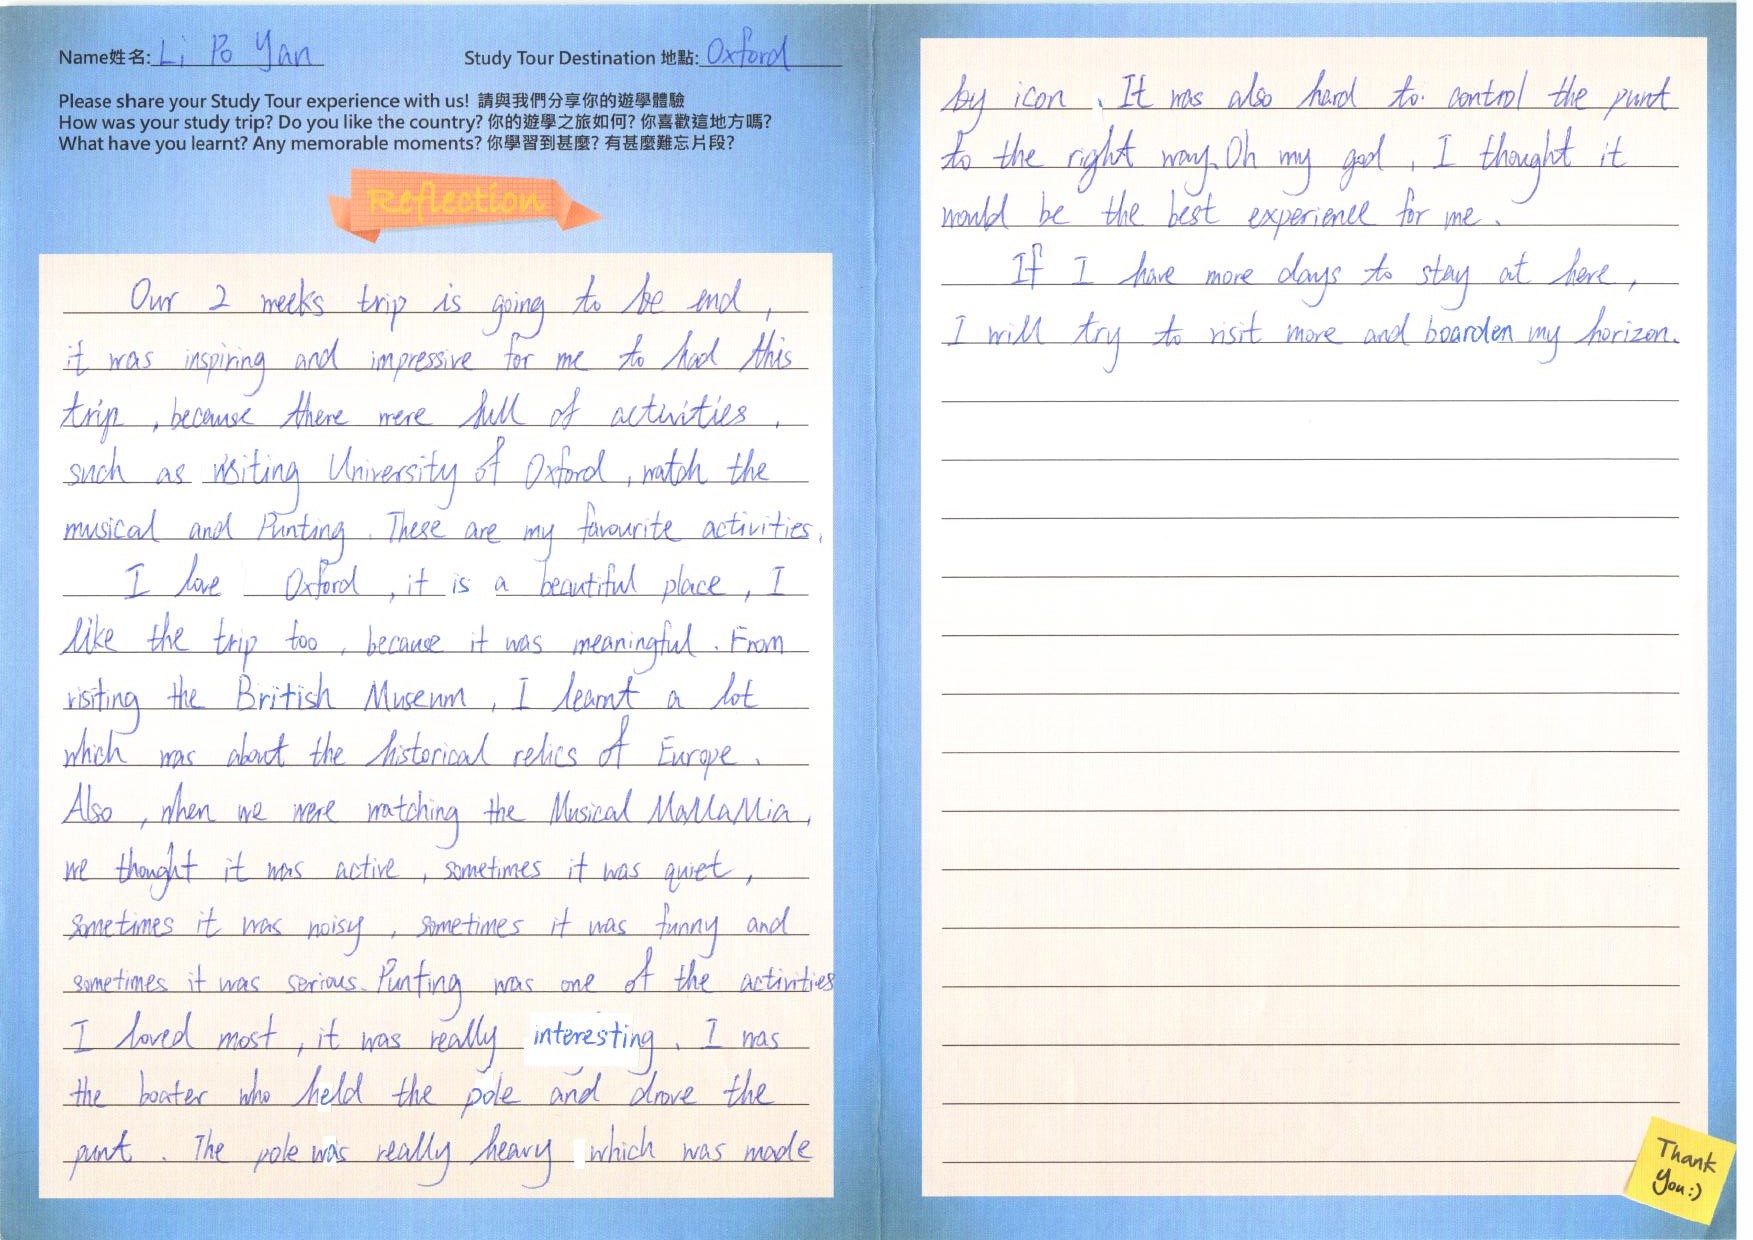 Name姓名: Li Po Yan
Study Tour Destination 地點: Oxford
Please share your Study Tour experience with us! 請與我們分享你的遊學體驗
How was your study trip? Do you like the country? 你的遊學之旅如何? 你喜歡這地方嗎?
What have you learnt? Any memorable moments? 你學習到甚麼? 有甚麼難忘片段?
Reflection
Our 2 weeks trip is going to be end,
it was inspiring and impressive for me to had this
trip, because there were full of activities,
such as visiting University of Oxford, watch the
musical and Punting. These are my favourite activities.
I love Oxford, it is a beautiful place, I
like the trip too, because it was meaningful. From
visiting the British Museum, I learnt a lot
which was about the historical relics of Europe.
Also, when we were watching the Musical MaMaMia,
we thought it was active, sometimes it was quiet,
sometimes it was noisy, sometimes it was funny and
sometimes it was serious. Punting was one of the activities
I loved most, it was really interesting. I was
the boater who held the pole and drove the
punt. The pole was really heavy which was made
by icon. It was also hard to control the punt
to the right way. Oh my god, I thought it
would be the best experience for me.
If I have more days to stay at here,
I will try to visit more and boarden my horizon.
Thank
You:)